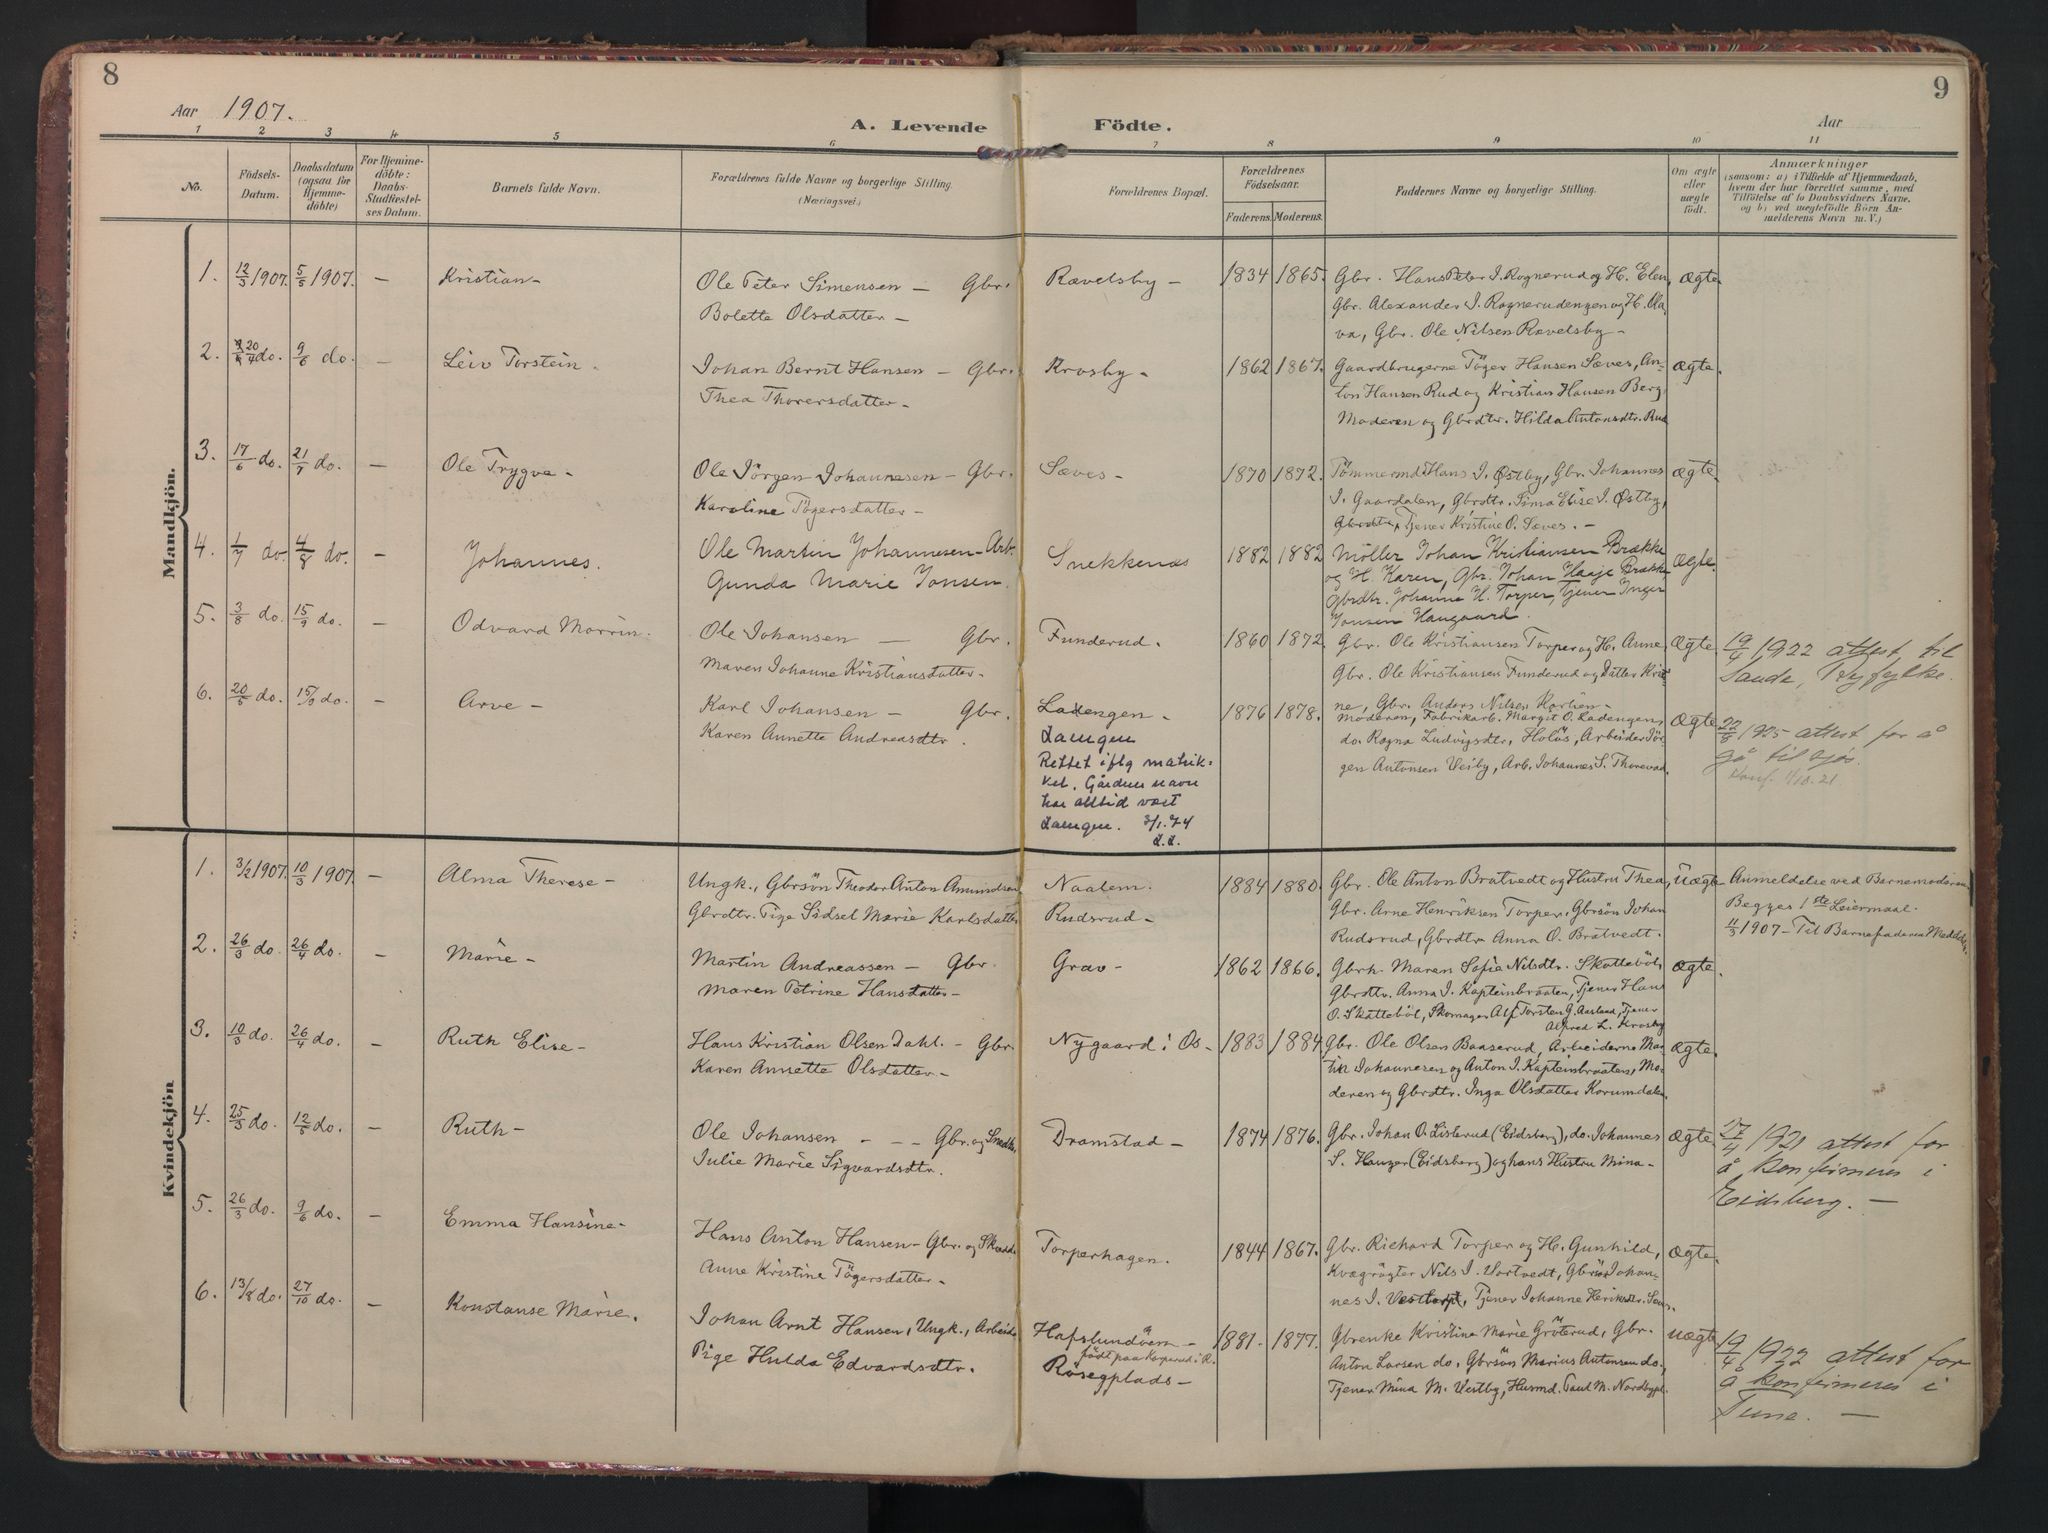 8
9
Aar 1907.
A. Levende Fødte.
Aar
1 2 3 4 5 6 7 8 9 10 11
No.
Födsels-Datum.
Daabsdatum (ogsaa for Hjemme-döbte)
For Hjemme-döbte: Daabs-Stadfæstel-ses Datum.
Barnets fulde Navn.
Forældrenes fulde Navne og borgerlige Stilling.
(Næringsvei.)
Forældrenes Bopæl.
Forældrenes Födselsaar.
Faderens. Moderens.
Faddernes Navne og borgerlige Stilling.
Om ægte eller uægte født.
Anmærkninger
(saasom: a) i Tilfælde af Hjemmedaab,
hvem der har forrettet samme, med
Tilföielse af to Daabsvidners Navne,
og b) ved uægtefödte Börn An-
melderens Navn m. V.)
Mandkjön.
1. 12/3 1907. 5/5 1907. — Kristian — Ole Peter Simensen — Gbr. Rævelsby — 1834 1865. Gbr. Hans Peter J. Rognerud og H. Elen, Ægte.
Bolette Olsdatter — Gbr. Alexander J. Rognerudengen og H. Ola-
va, Gbr. Ole Nilsen Rævelsby —
2. 20/4 do. 9/6 do. — Leiv Torstein. Johan Bernt Hansen — Gbr. Krosby — 1862 1867. Gaardbrugerne Töger Hansen Sæves, An- Ægte.
Thea Thorersdatter — ton Hansen Rud og Kristian Hansen Berg
Moderen og Gbrdtr. Hilda Antonsdtr. Rud
3. 17/6 do. 21/7 do. — Ole Trygve — Ole Jörgen Johannesen — Gbr. Sæves — 1870 1872. Tömmermd. Hans J. Østby, Gbr. Johannes Ægte.
Karoline Tögersdatter — J. Gaardalen, Gbrdtr. Sina Elise J. Østby,
Gbrdtr, Tjener Kristine O. Sæves. —
4. 1/7 do. 4/8 do. — Johannes. Ole Martin Johannesen — Arb. Snekkenæs 1882 1882 Möller Johan Kristiansen Brække Ægte.
Gunda Marie Jonsen. og H. Karen, Gbr. Johan Haaje Brække
Gbrdtr. Johanne H. Torper, Tjener Inger
Jonsen Haugaard.
5. 3/8 do. 15/9 do. — Odvard Morrin. Ole Johansen — Gbr. Funderud. 1860 1872. Gbr. Ole Kristiansen Torper og H. Anne Ægte. 19/4 1922 attest til
Maren Johanne Kristiansdatter — Gbr. Ole Kristiansen Funderud og Datter Kristi- Sauda, Ryfylke.
ne, Gbr. Anders Nilsen
6. 20/5 do. 15/9 do. — Arve — Karl Johansen — Gbr. Ladengen — 1876 1878. Moderen, Fabrikarb. Margit O. Ladengen, Ægte 22/8 1925 attest for å
Karen Annette Andreasdtr. Laengen do. Ragna Ludvigsdtr, Holös, Arbeider Jör- gå til sjös.
Rettet iflg matrik- gen Antonsen Veiby, Arb. Johannes S. Thorevad. Konf. 1/10.21
kel. Gårdens navn
har alltid vært
Laengen. 3/1.74
Kvindekjön
1. 3/2 1907. 10/3 1907. — Alma Therese — Ungk., Gbrsön Theodor Anton Amundsen Naalem. 1884 1880. Gbr. Ole Anton Bratvedt og Hustru Thea, Uægte Anmeldelse ved Barnemoderen
Gbrdtr. Pige Sidsel Marie Karlsdatter Rudsrud — Gbr. Arne Henriksen Torper, Gbrsön Johan Begges 1ste Leiermaal.
Rudsrud, Gbrdtr. Anna O. Bratvedt. 11/3 1907 — Til Barnefaderen Meddelse
2. 26/3 do. 26/4 do. — Marie — Martin Andreassen — Gbr. Grav — 1862 1866. Gbrk. Maren Sofie Nilsdtr. Skatteböl, Ægte.
Maren Petrine Hansdatter — Gbrdtr. Anna J. Kapteinbraaten, Tjener Hans
O. Skatteböl, Skomager Alf Torsten G. Aasland, Tjener
Alfred L. Krosby
3. 10/3 do. 26/4 do. — Ruth Elise — Hans Kristian Olsen Dahl. — Gbr. Nygaard i Os — 1883 1884 Gbr. Ole Olsen Baaserud, Arbeiderne Mar- Ægte.
Karen Annette Olsdatter — tin Johannesen og Anton J. Kapteinbraaten, Mo-
deren og Gbrdtr. Inga Olsdatter Korumdalen.
4. 25/3 do. 12/5 do. — Ruth — Ole Johansen — — Gbr. og Snedk. Dramstad — 1874 1876. Gbr. Johan O. Listerud (Eidsberg), do. Johannes Ægte. 17/4 1921 attest for
Julie Marie Sigvardsdtr. S. Hanger (Eidsberg) og hans Hustru Mina — å konfirmeres i
Eidsberg. —
5. 26/3 do. 9/6 do. — Emma Hansine — Hans Anton Hansen — Gbr. og Skrædd. Torperhagen. 1844 1867. Gbr. Richard Torper og H. Gunhild, Ægte.
Anne Kristine Tögersdatter — Kvægrögter Nils J. Vortvedt, Gbrsön Johan-
nes J. Vestorp, Tjener Johanne Henriksdtr.
6. 13/8 do. 27/10 do. — Konstanse Marie. Johan Arnt Hansen, Ungk., Arbeider Hafslundöen — 1881. 1877. Gbrenke Kristine Marie Gröterud, Gbr. Uægte 19/4 1922 attest for
født paa Korperud i R. Anton Larsen do. Gbrsön Marius Antonsen do., å konfirmeres i
Pige Hulda Edvardsdtr. Rösegplads — Tjener Mina M. Vestby, Husmd. Paul M. Nordbypl. Tune. —